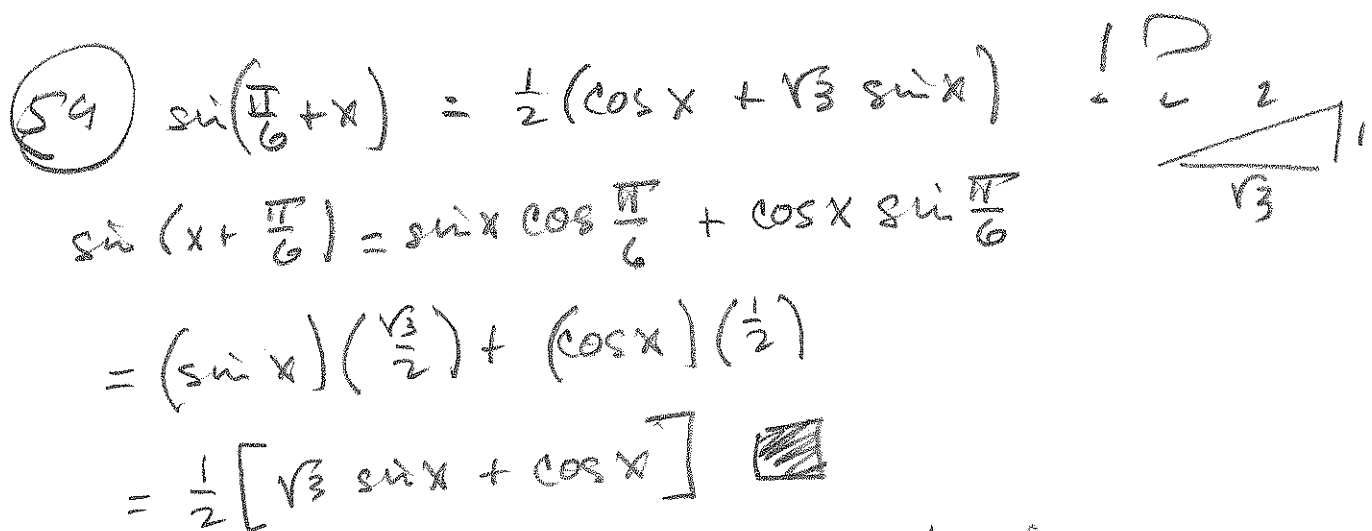 54 sin(π/6 + x) = 1/2 (cos x + √3 sin x)
2
1
√3
sin (x + π/6) = sin x cos π/6 + cos x sin π/6
= (sin x)(√3/2) + (cos x)(1/2)
= 1/2 [√3 sin x + cos x]